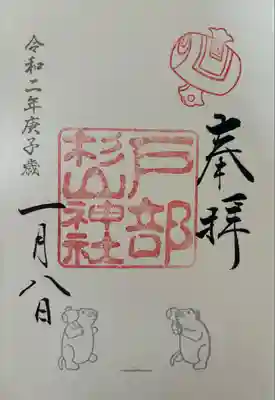 奉拝
戸部
杉山神社
令和二年庚子歳
一月八日